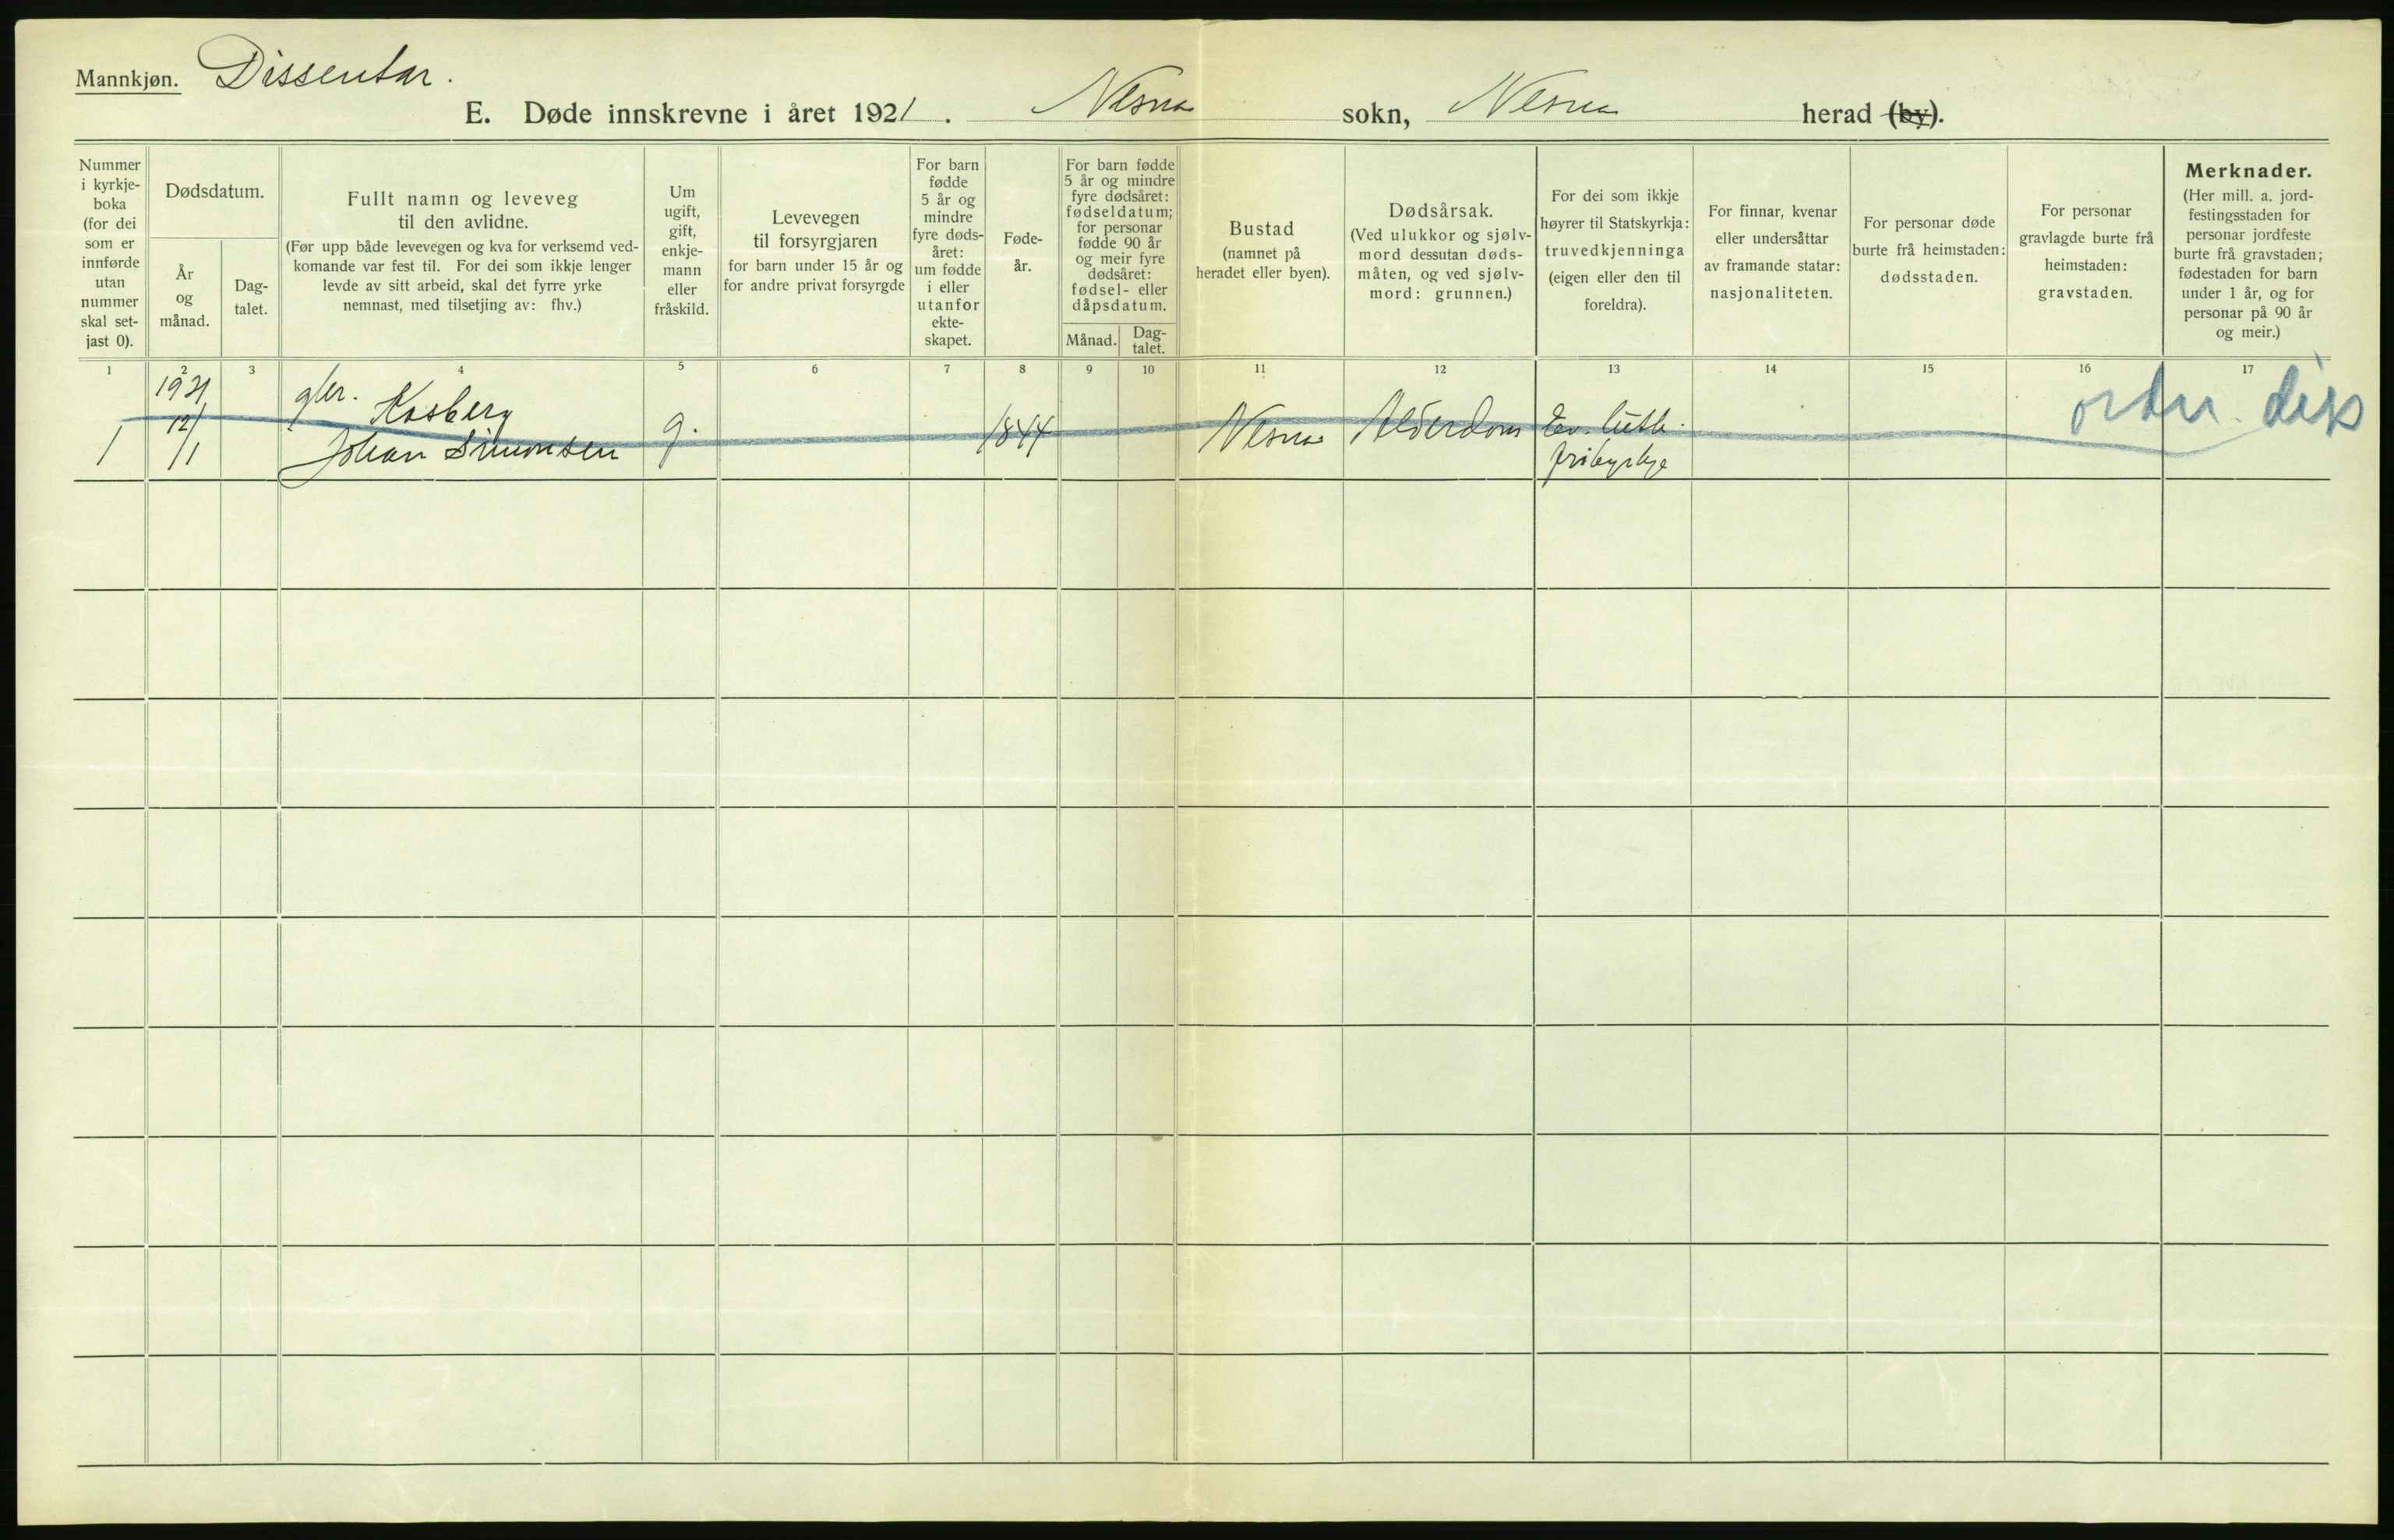 Mannkjøn. Dissentar.
E. Døde innskrevne i året 1921. Nesna sokn, Nesna herad (by).
Nummer
i kyrkje-
boka
(for dei
som er
innførde
utan
nummer
skal set-
jast 0).
Dødsdatum.
År
og
månad.
Dag-
talet.
Fullt namn og leveveg
til den avlidne.
(Før upp både levevegen og kva for verksemd ved-
komande var fest til. For dei som ikkje lenger
levde av sitt arbeid, skal det fyrre yrke
nemnast, med tilsetjing av: fhv.)
Um
ugift,
gift,
enkje-
mann
eller
fråskild.
Levevegen
til forsyrgjaren
for barn under 15 år og
for andre privat forsyrgde
For barn
fødde
5 år og
mindre
fyre døds-
året:
um fødde
i eller
utanfor
ekte-
skapet.
Føde-
år.
For barn fødde
5 år og mindre
fyre dødsåret:
fødseldatum;
for personar
fødde 90 år
og meir fyre
dødsåret:
fødsel- eller
dåpsdatum.
Månad.
Dag-
talet.
Bustad
(namnet på
heradet eller byen).
Dødsårsak.
(Ved ulukkor og sjølv-
mord dessutan døds-
måten, og ved sjølv-
mord: grunnen.)
For dei som ikkje
høyrer til Statskyrkja:
truvedkjenninga
(eigen eller den til
foreldra).
For finnar, kvenar
eller undersåttar
av framande statar:
nasjonaliteten.
For personar døde
burte frå heimstaden:
dødsstaden.
For personar
gravlagde burte frå
heimstaden:
gravstaden.
Merknader.
(Her mill. a. jord-
festingsstaden for
personar jordfeste
burte frå gravstaden;
fødestaden for barn
under 1 år, og for
personar på 90 år
og meir.)
1 2 3 4 5 6 7 8 9 10 11 12 13 14 15 16 17
1921
12/
1 11
Kosberg
Johan Simonsen
g.
1844
Nesna
Alderdom
Ev. luth.
frikyrkje